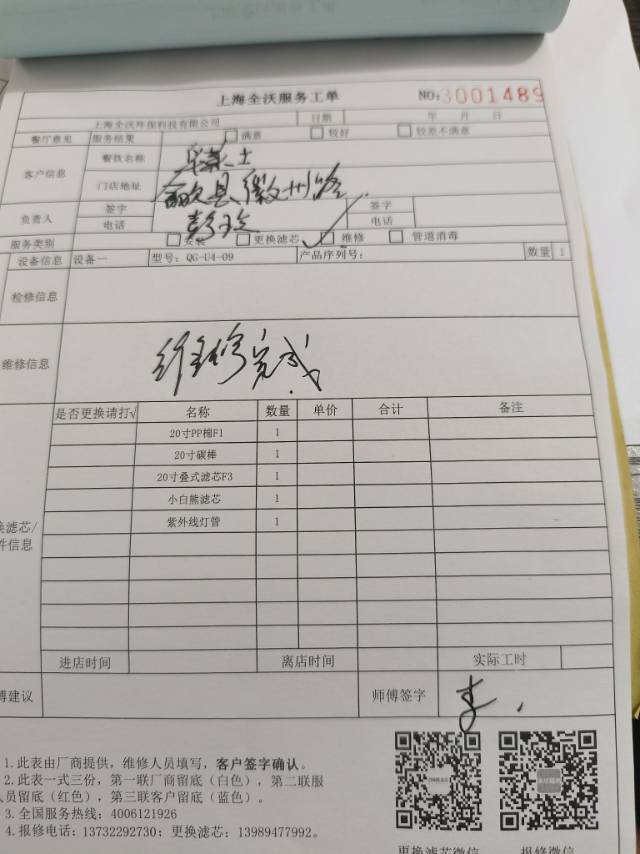 上海全沃服务工单 NO:3001489
上海全沃环保科技有限公司 日期 年 月 日
餐厅意见 服务结果 满意 较好 较差不满意
客户信息 餐饮名称
门店地址 歙县徽州路
负责人 签字 签字
电话 电话
服务类别 安装 更换滤芯 维修 管道消毒
设备信息 设备一 型号：QG-U4-09 产品序列号： 数量 1
检修信息
维修信息 维修完成
是否更换请打√ 名称 数量 单价 合计 备注
20寸PP棉F1 1
20寸碳棒 1
20寸叠式滤芯F3 1
小白熊滤芯 1
紫外线灯管 1
换滤芯/
件信息
进店时间 离店时间 实际工时
傅建议 师傅签字 李
1.此表由厂商提供，维修人员填写，客户签字确认。
2.此表一式三份，第一联厂商留底（白色），第二联服
人员留底（红色），第三联客户留底（蓝色）。
3.全国服务热线：4006121926
4.报修电话：13732292730；更换滤芯：13989477992。
更换滤芯微信 报修微信